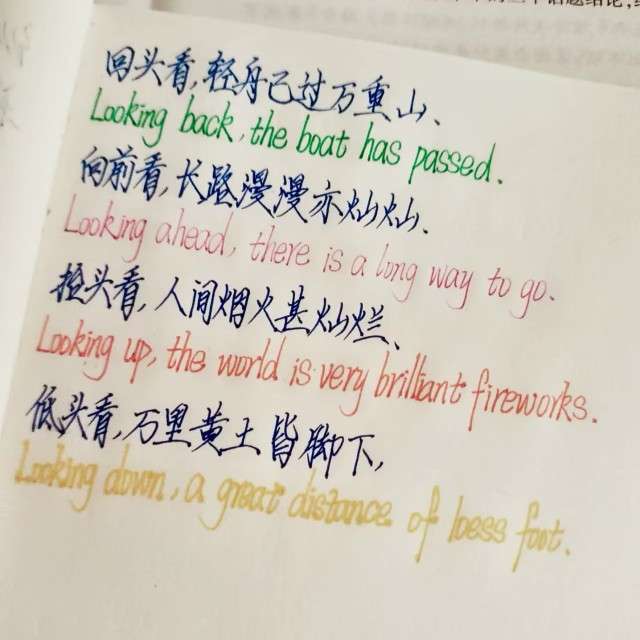 话题结论,
回头看,轻舟已过万重山、
Looking back, the boat has passed.
向前看,长路漫漫亦灿灿、
Looking ahead, there is a long way to go.
抬头看,人间烟火甚灿烂、
Looking up, the world is very brilliant fireworks.
低头看,万里黄土皆脚下,
Looking down, a great distance of loess foot.